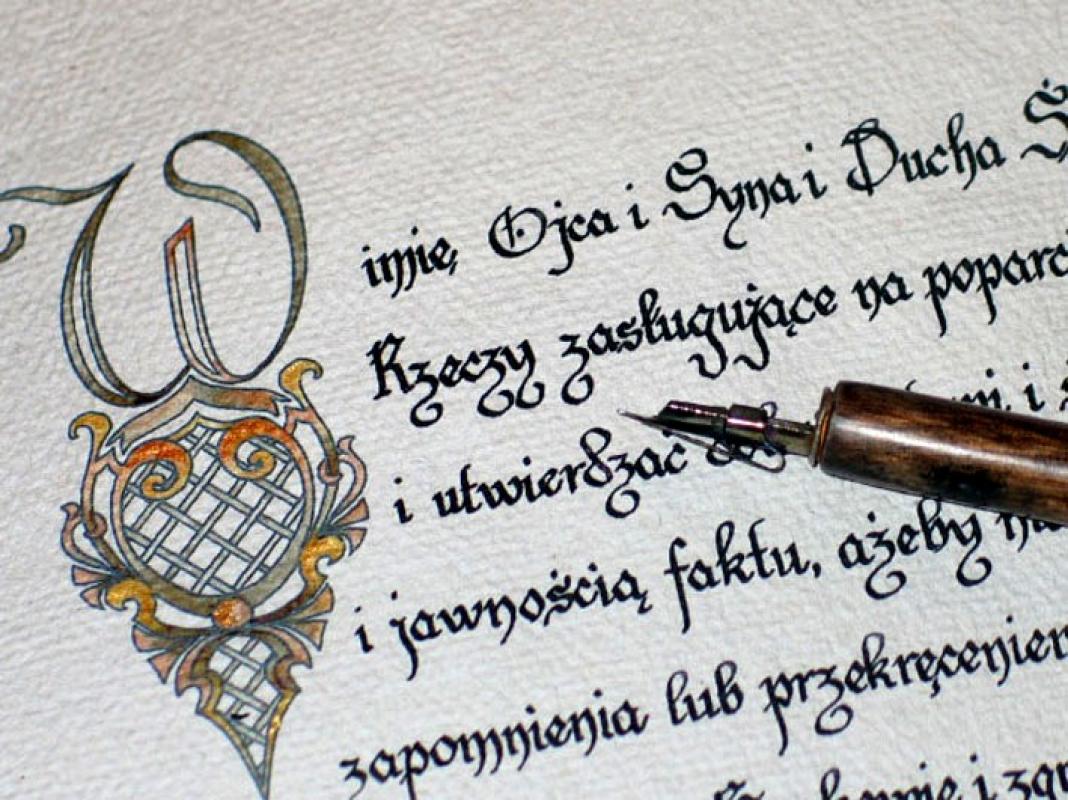 W imię Ojca i Syna i Ducha Ś
Rzeczy zasługujące na poparci
i utwierdzać
i jawnością faktu, ażeby
zapomnienia lub przekręcenien
i zgr